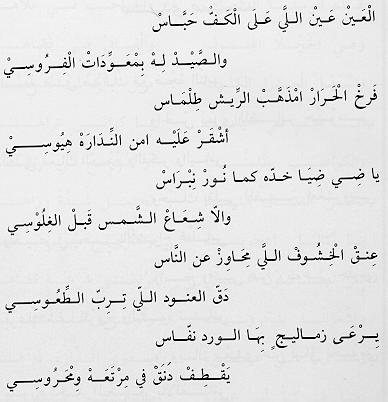 الْعَيْنْ عَيْنْ اللِّي عَلَى الْكَفّْ حَبَّاسْ
والصَّيْدْ لِهْ بِمْعَوِّدَاتْ الْفِرُوسِيْ
فَرخْ الْحَرَارْ امْذَهَّبْ الرِّيشْ طلْمَاسْ
أشْقَرْ عَلَيْه امن النِّدَارَهْ هِيُوسِيْ
يا ضِي ضِيَا خدّه كما نُورْ نِبْرَاسْ
والّا شِعَاعْ الشَّمس قَبلْ الغِلُوْسِي
عِنقْ الْخِشُوفْ اللي مِحَاوِزْ عن النَّاس
دَقّ العنود اللّي تِرِبّ الطِّعُوسِي
يِرْعَى زماليجٍ بِهَا الورد نفّاس
يَقْطِفْ دَنَقْ في مِرْتَعَهْ ومْحَرُوسِي